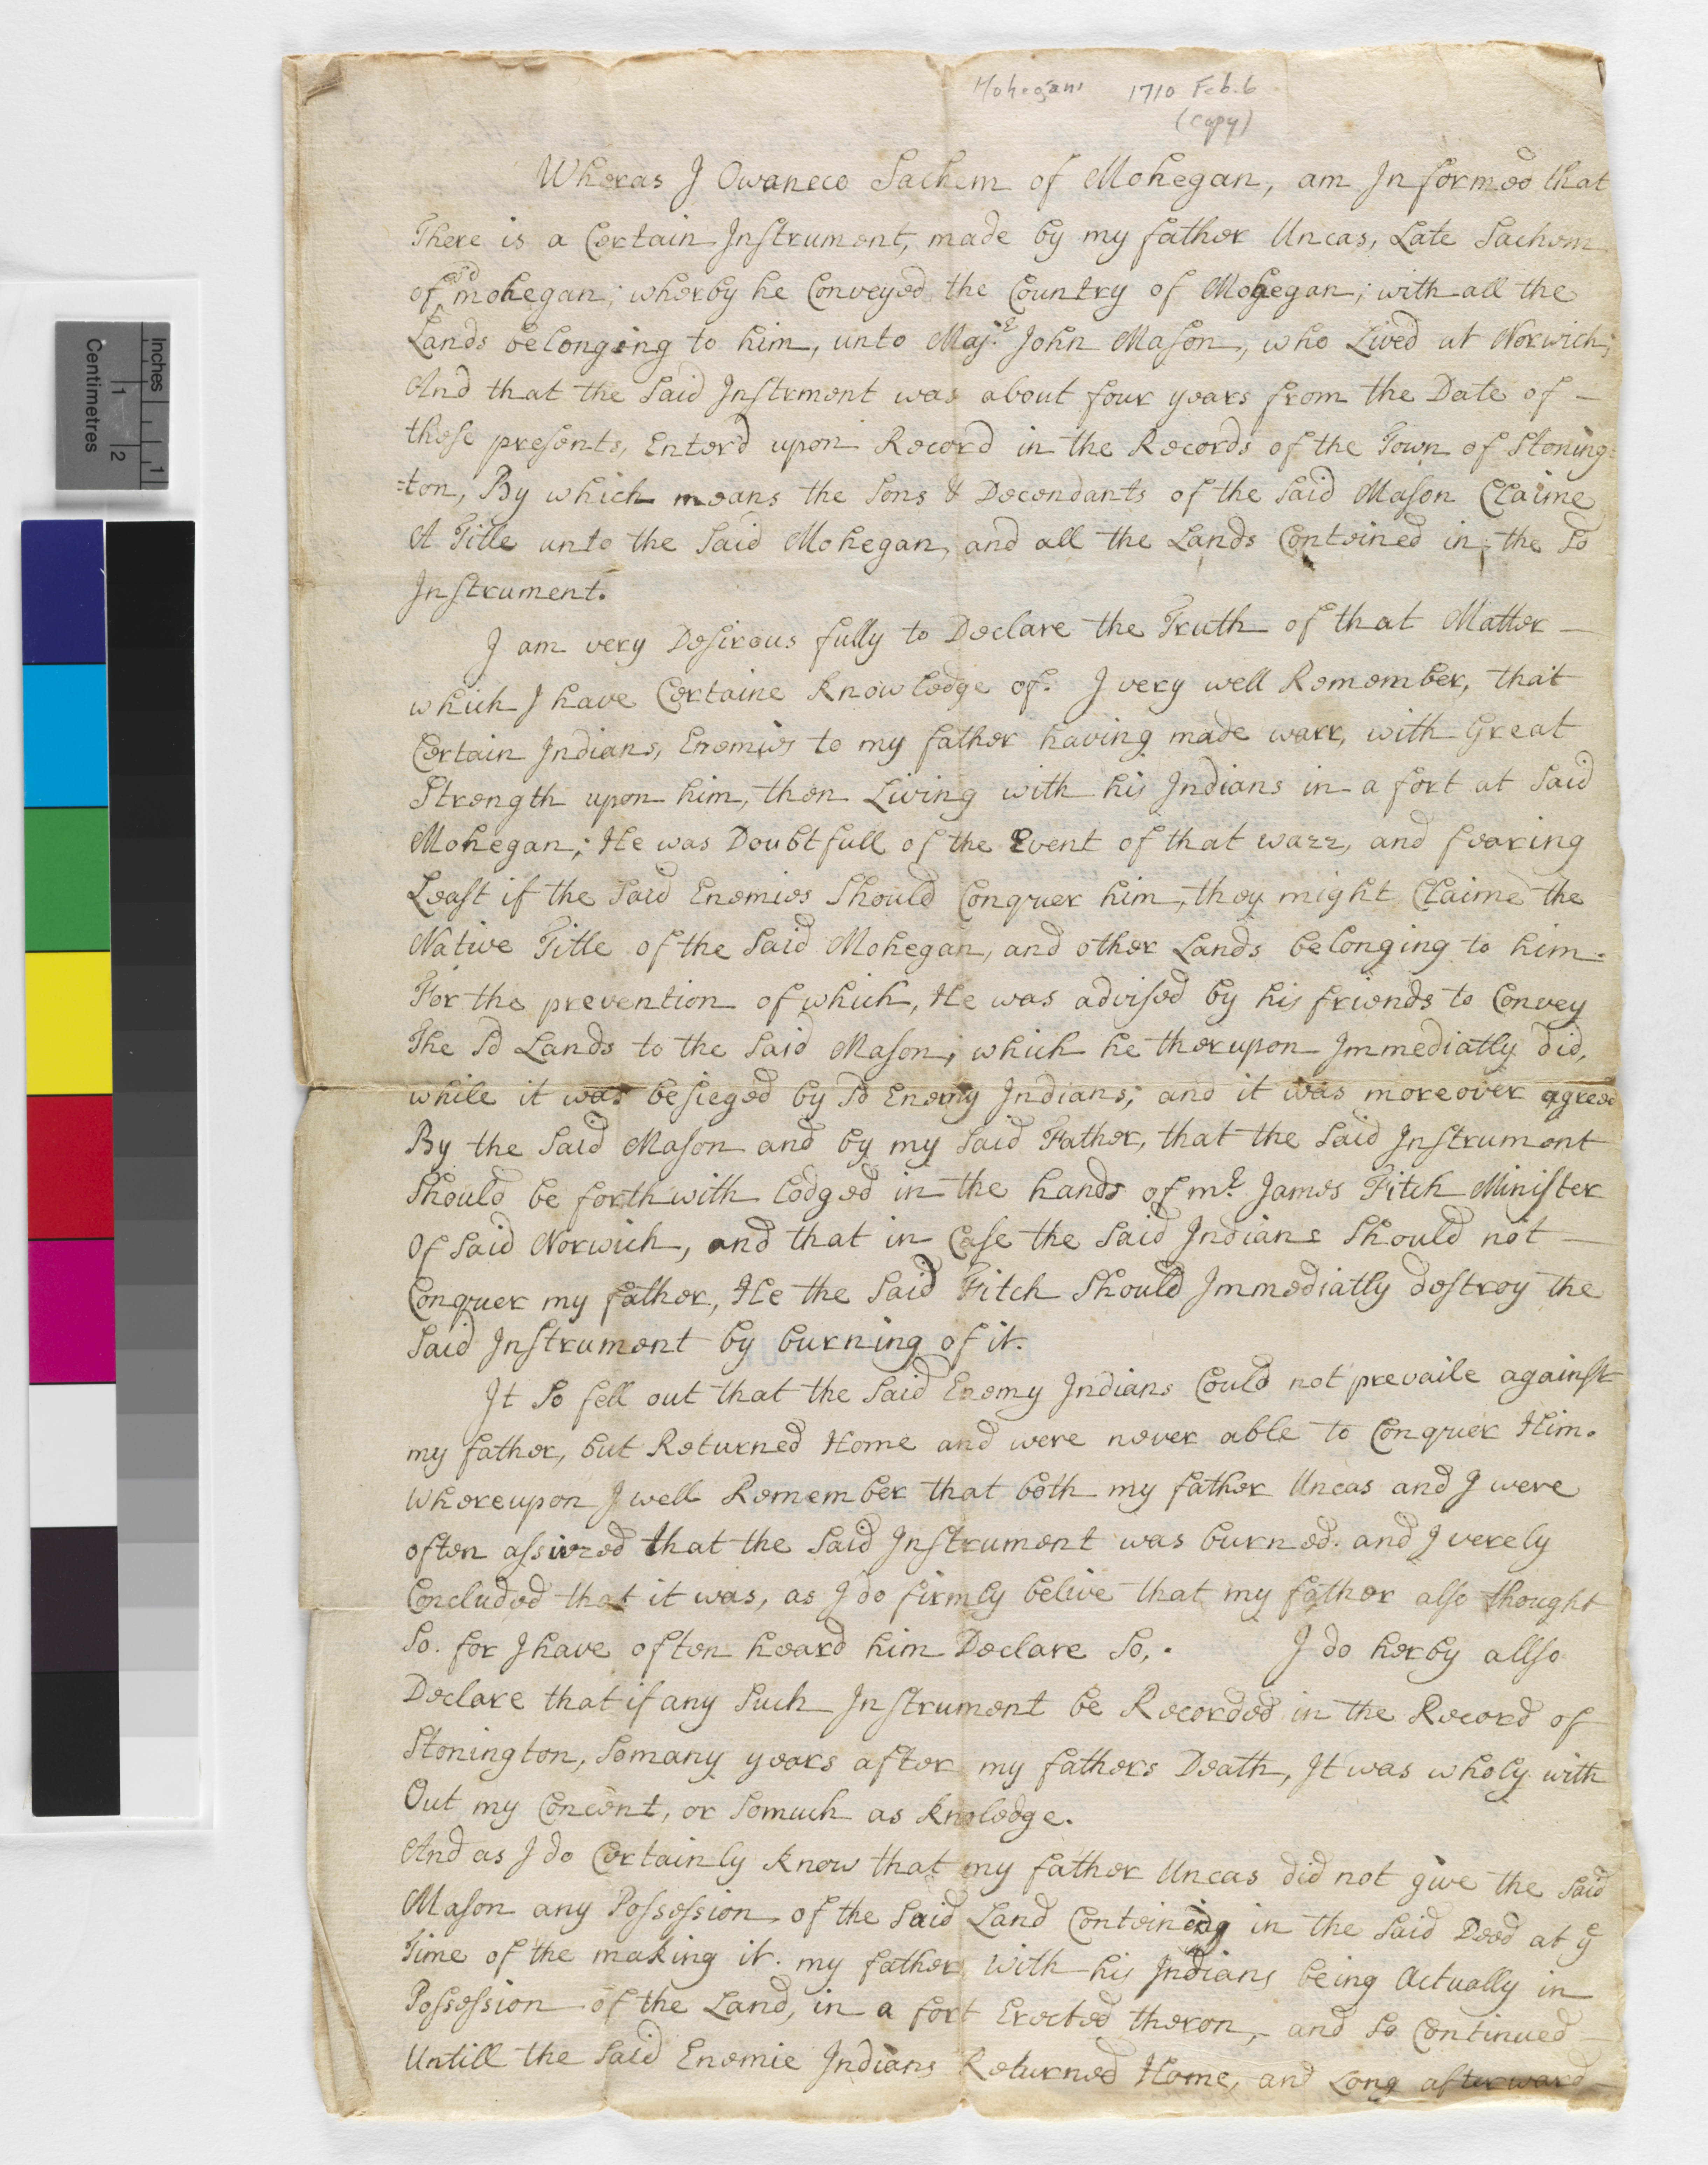 Mohegans 1710 Feb. 6
(copy)
Wheras I Owaneco Sachem of Mohegan, am Informed that
There is a Certain Instrument, made by my father Uncas, Late Sachem
of sd mohegan; wherby he Conveyed the Country of Mohegan; with all the
Lands belonging to him, unto Majr. John Mason, who Lived at Norwich;
And that the Said Instrment was about four years from the Date of -
these presents, Enterd upon Record in the Records of the Town of Stoning=
=ton, By which means the Sons & Decendants of the Said Mason Claime
A Title unto the Said Mohegan, and all the Lands Contained in the Sd
Instrument.
I am very Desirous fully to Declare the Truth of that Matter -
which I have Certaine Knowledge of. I very well Remember, that
Certain Indians, Enemies to my father having made warr, with Great
Strength upon him, then Living with his Indians in a fort at Said
Mohegan; He was Doubtfull of the Event of that warr, and fearing
Least if the Said Enemies Should Conquer him, they might Claime the
Native Title of the Said Mohegan, and other Lands belonging to him.
For the prevention of which, He was advised by his friends to Convey
The Sd Lands to the Said Mason; which he therupon Immediatly did,
while it was besieged by Sd Enemy Indians; and it was moreover agreed
By the Said Mason and by my Said Father, that the Said Instrument
Should be forthwith lodged in the hands of mr. James Fitch Minister
Of Said Norwich, and that in Case the Said Indians Should not -
Conquer my father, He the Said Fitch Should Immediatly destroy the
Said Instrument by burning of it.
It So fell out that the Said Enemy Indians Could not prevaile against
my father, but Returned Home and were never able to Conquer Him.
Whereupon I well Remember that both my father Uncas and I were
often assured that the Said Instrument was burned. and I verely
Concluded that it was, as I do firmly belive that my father also thought
So. for I have often heard him Declare So, . I do herby allso
Declare that if any Such Instrument be Recorded in the Record of
Stonington, Somany years after my fathers Death, It was wholy with
Out my Concent, or Somuch as knoledge.
And as I do Certainly know that my father Uncas did not give the Said
Mason any Possession of the Said Land Containing in the Said Deed at ye
Time of the making it. my father with his Indians being Actually in
Possession of the Land, in a fort Erected theron, and So Continued -
Untill the Said Enemie Indians Returned Home, and Long afterward -
Inches
1
Centimetres
1
2